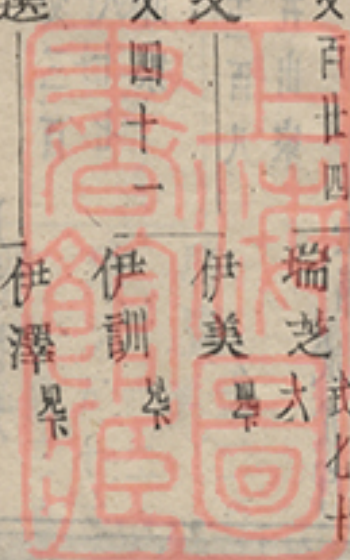 百廿四
瑞芝 六 式七十
伊美 見下
四十一
伊訓 見下
伊澤 見下
上海圖
書館藏